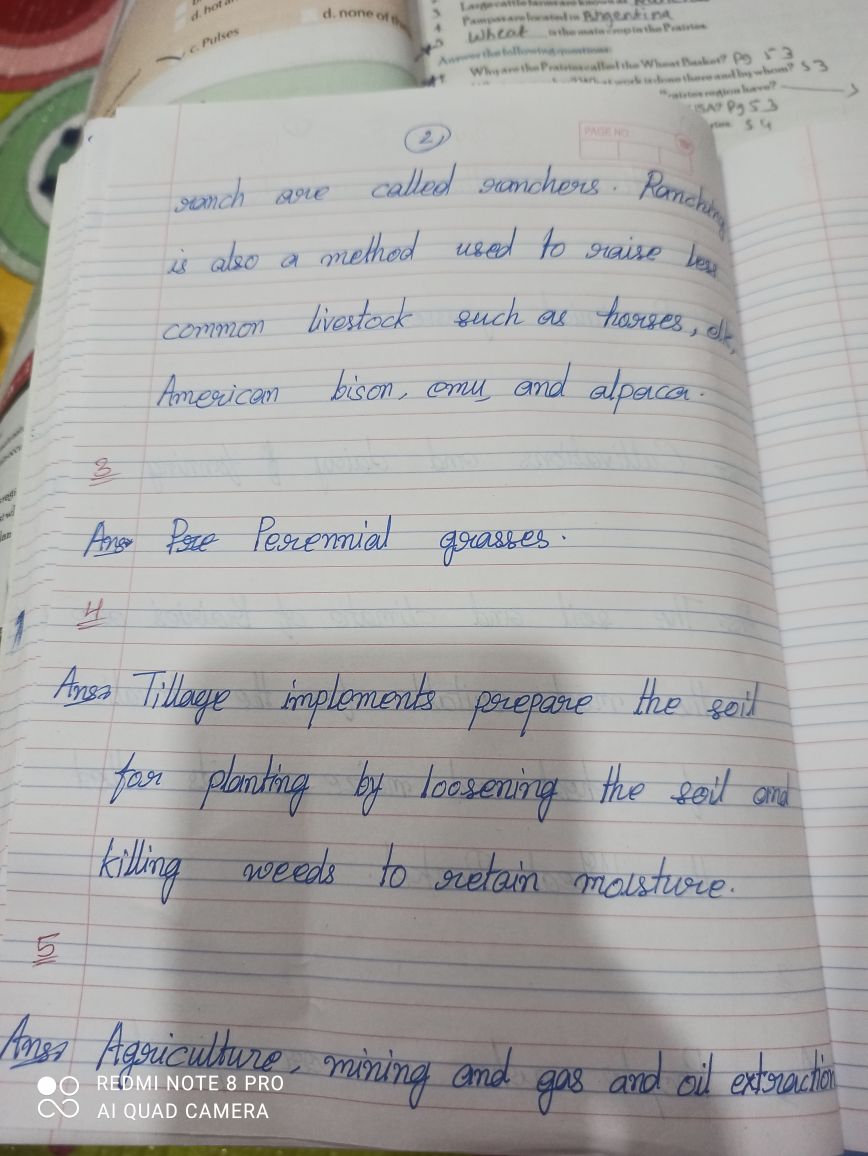 d. hot a
d. none of the
c. Pulses
Pampas are located in Argentina
Wheat is the main crop in the Prairies
Answer the following questions:
Why are the Prairies called the Wheat Basket? Pg 53
work is done there and by whom? 53
region have?
Pg 53
54
2
PAGE NO
ranch are called ranchers. Ranching
is also a method used to raise less
common livestock such as horses, elk,
American bison, emu, and alpaca.
3
Ans Pre Perennial grasses.
4
Ans Tillage implements prepare the soil
for planting by loosening the soil and
killing weeds to retain moisture.
5
Ans Agriculture, mining and gas and oil extraction
REDMI NOTE 8 PRO
AI QUAD CAMERA